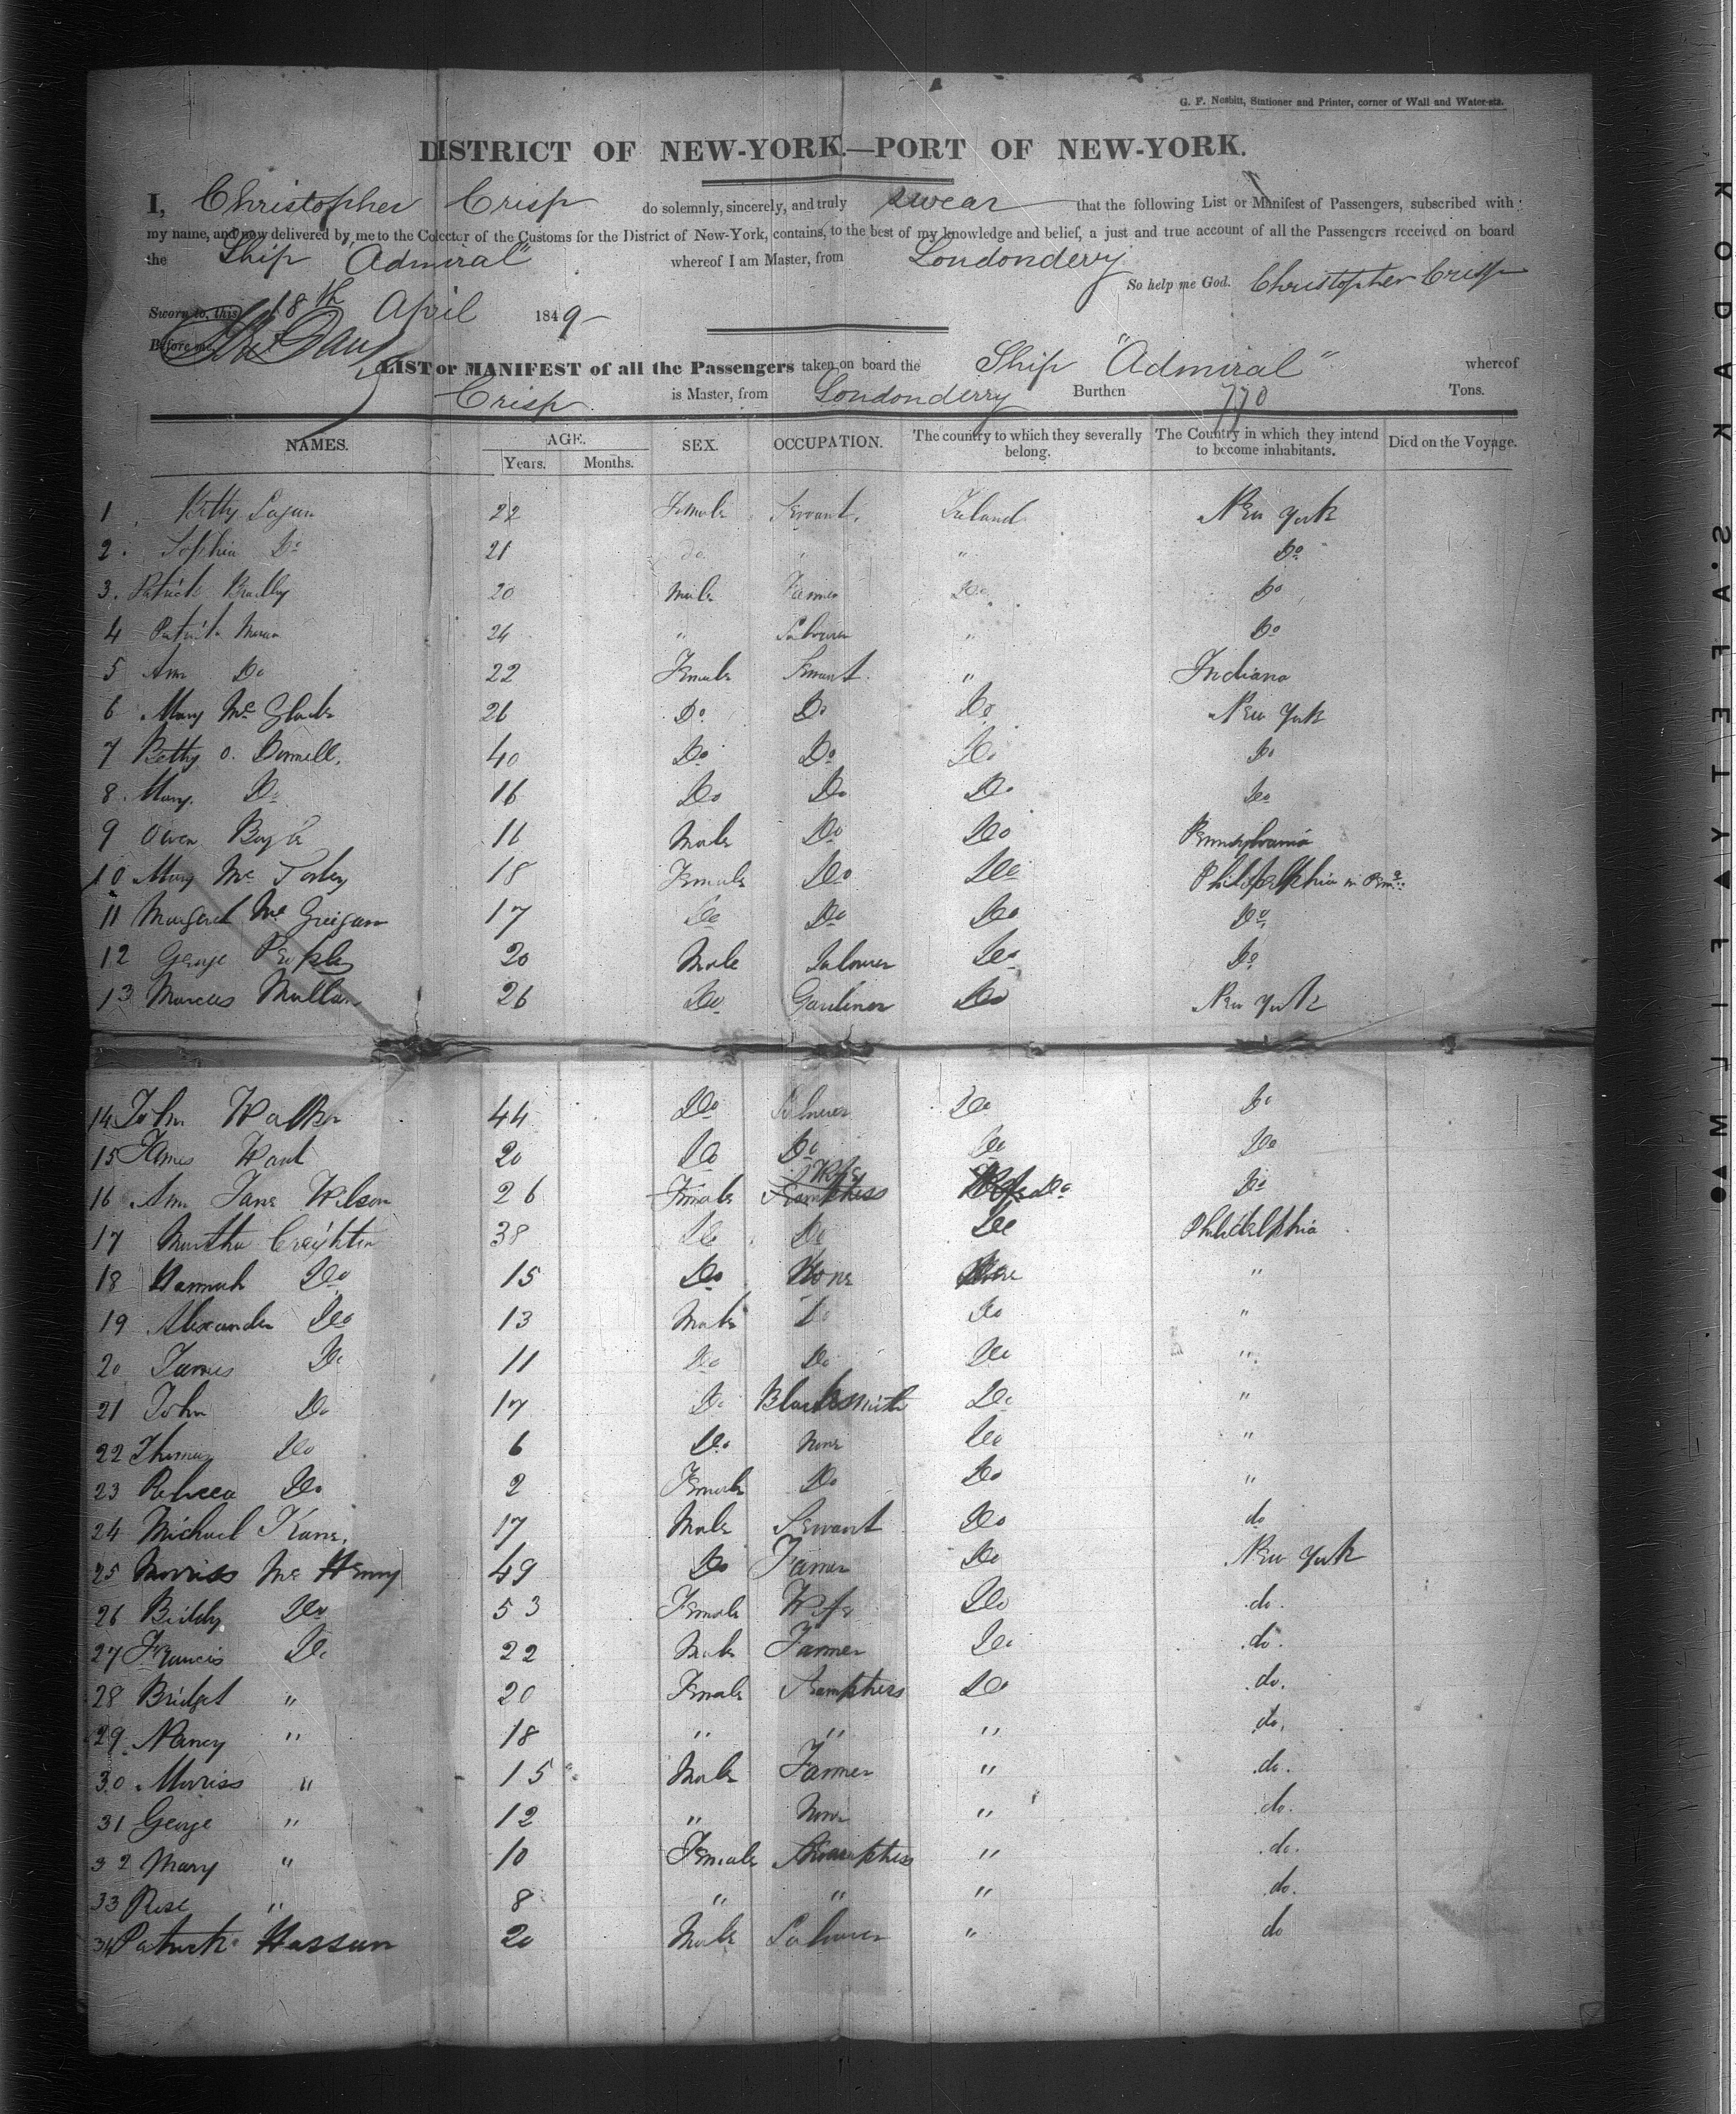 G. F. Nesbitt, Stationer and Printer, corner of Wall and Water-sts.
DISTRICT OF NEW-YORK.—PORT OF NEW-YORK.
I, Christopher Crisp do solemnly, sincerely, and truly swear that the following List or Manifest of Passengers, subscribed with
my name, and now delivered by me to the Colector of the Customs for the District of New-York, contains, to the best of my knowledge and belief, a just and true account of all the Passengers received on board
the Ship "Admiral" whereof I am Master, from Londonderry
So help me God. Christopher Crisp
Sworn to, this 18th April 1849-
Before me,
LIST or MANIFEST of all the Passengers taken on board the Ship "Admiral" whereof
Crisp is Master, from Londonderry Burthen 770 Tons.
NAMES. AGE. SEX. OCCUPATION. The country to which they severally belong. The Country in which they intend to become inhabitants. Died on the Voyage.
Years. Months.
1 Betty 22 Female Servant. Ireland New York
2. Sophia Do 21 do " " Do
3. Patrick Bradley 20 Male Farmer Do Do
4 Patrick 24 " Labourer " Do
5 Ann Do 22 Female Servant. " Indiana
6 Mary Mc 26 Do Do Do New York
7 Betty o. Donnell. 40 Do Do Do Do
8. Mary. Do 16 Do Do Do Do
9 Owen Boyle 11 Male Do Do Pennsylvania
10 Mary Mc 18 Female Do Do Philidelphia in
11 Margaret Mc 17 Do Do Do Do
12 George Peoples 20 Male Labourer Do Do
13 Marcus Mullan 26 Do Gardiner Do New York
14 John Walker 44 Do Labourer Do Do
15 James Ward 20 Do Do Do Do
16 Ann Jane Wilson 26 Female Wife Do Do
17 Martha Creighton 38 Do Do Do Philidelphia
18 Hannah Do 15 Do None "
19 Alexander Do 13 Male Do Do "
20 James Do 11 Do Do Do "
21 John Do 17 Do Blacksmith Do "
22 Thomas Do 6 Do None Do "
23 Rebecca Do 2 Female Do Do "
24 Michael Kane. 17 Male Servant Do do
25 Morriss Mc Henry 49 Do Farmer Do New York
26 Biddy Do 53 Female Wife Do do.
27 Francis Do 22 Male Farmer Do do.
28 Bridget " 20 Female Do do.
29 Nancy " 18 " " " do.
30 Morriss " 15 Male Farmer " do.
31 George " 12 " None " do.
32 Mary " 10 Female " do.
33 Rose " 8 " " " do.
34 Patrick Hassun 20 Male Labourer " do
MICROFILMED BY KODAK SAFETY FILM